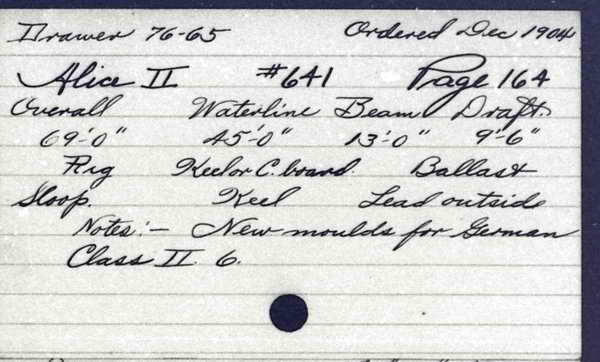 Drawer 76-65 Ordered Dec 1904
Alice II #641 Page 164
Overall Waterline Beam Draft.
69'-0" 45'-0" 13'-0" 9'-6"
Rig Keel or C. board. Ballast
Sloop. Keel Lead outside
Notes:- New moulds for German
Class II. 6.